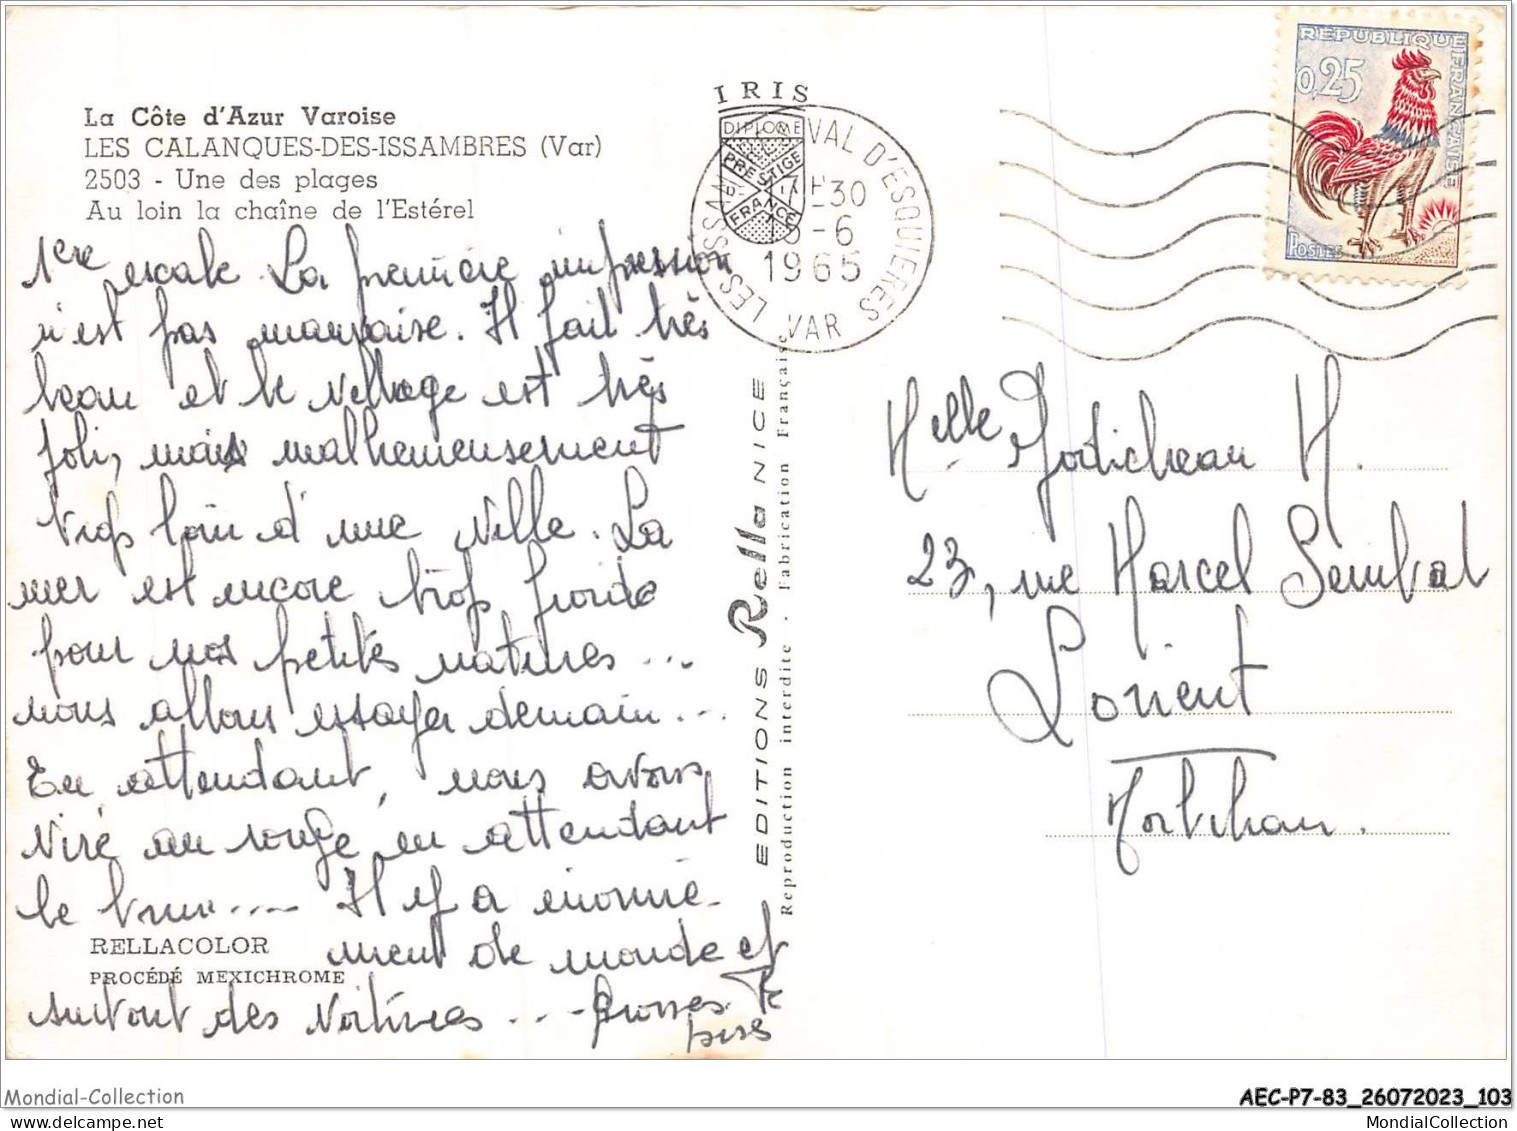 La Côte d'Azur Varoise
LES CALANQUES-DES-ISSAMBRES (Var)
2503 - Une des plages
Au loin la chaîne de l'Estérel
1ere escale. La première impression
n'est pas mauvaise. Il fait très
beau et le village est très
joli, mais malheureusement
trop loin d'une ville. La
mer est encore trop froide
pour nos petites natures ...
nous allons essayer demain ...
En attendant, nous avons
viré au rouge en attendant
le brun .... Il y a énormé-
ment de monde et
surtout des voitures ... Grosses
bises
RELLACOLOR
PROCÉDÉ MEXICHROME
IRIS
DIPLOME
PRESTIGE
DE
FRANCE
VAL D'ESQUIERES
LES ISSAM
30
-6
1965
VAR
EDITIONS Rella NICE
Reproduction interdite - Fabrication Française
REPUBLIQUE FRANÇAISE
0,25
POSTES
Melle H.
23, rue Marcel Sembat
Lorient
Morbihan.
Mondial-Collection
AEC-P7-83_26072023_103
MondialCollection.com